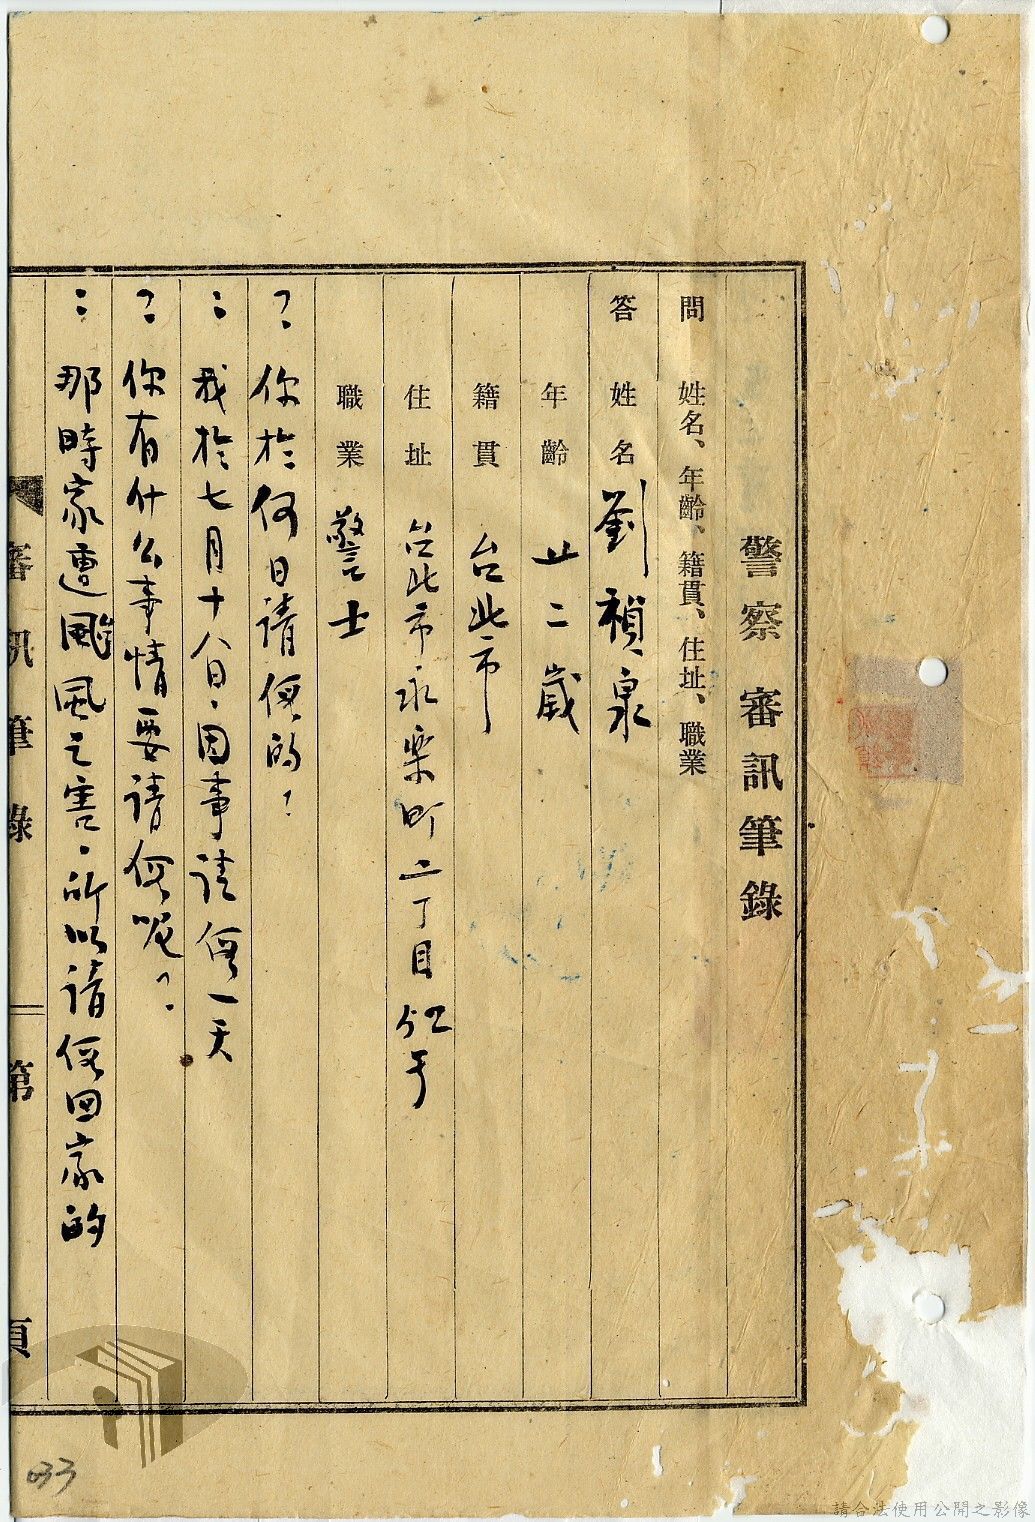 警察 審訊筆錄
問 姓名、年齡、籍貫、住址、職業
答 姓名 劉禎泉
年齡 廿二歲
籍貫 台北市
住址 台北市永樂町二丁目
職業 警士
？ 你於何日請假的？
： 我於七月十八日，因事請假一天
？ 你有什么事情要請假呢？
： 那時家遭颱風之害，所以請假回家的
審訊筆錄 第 頁
033
請合法使用公開之影像